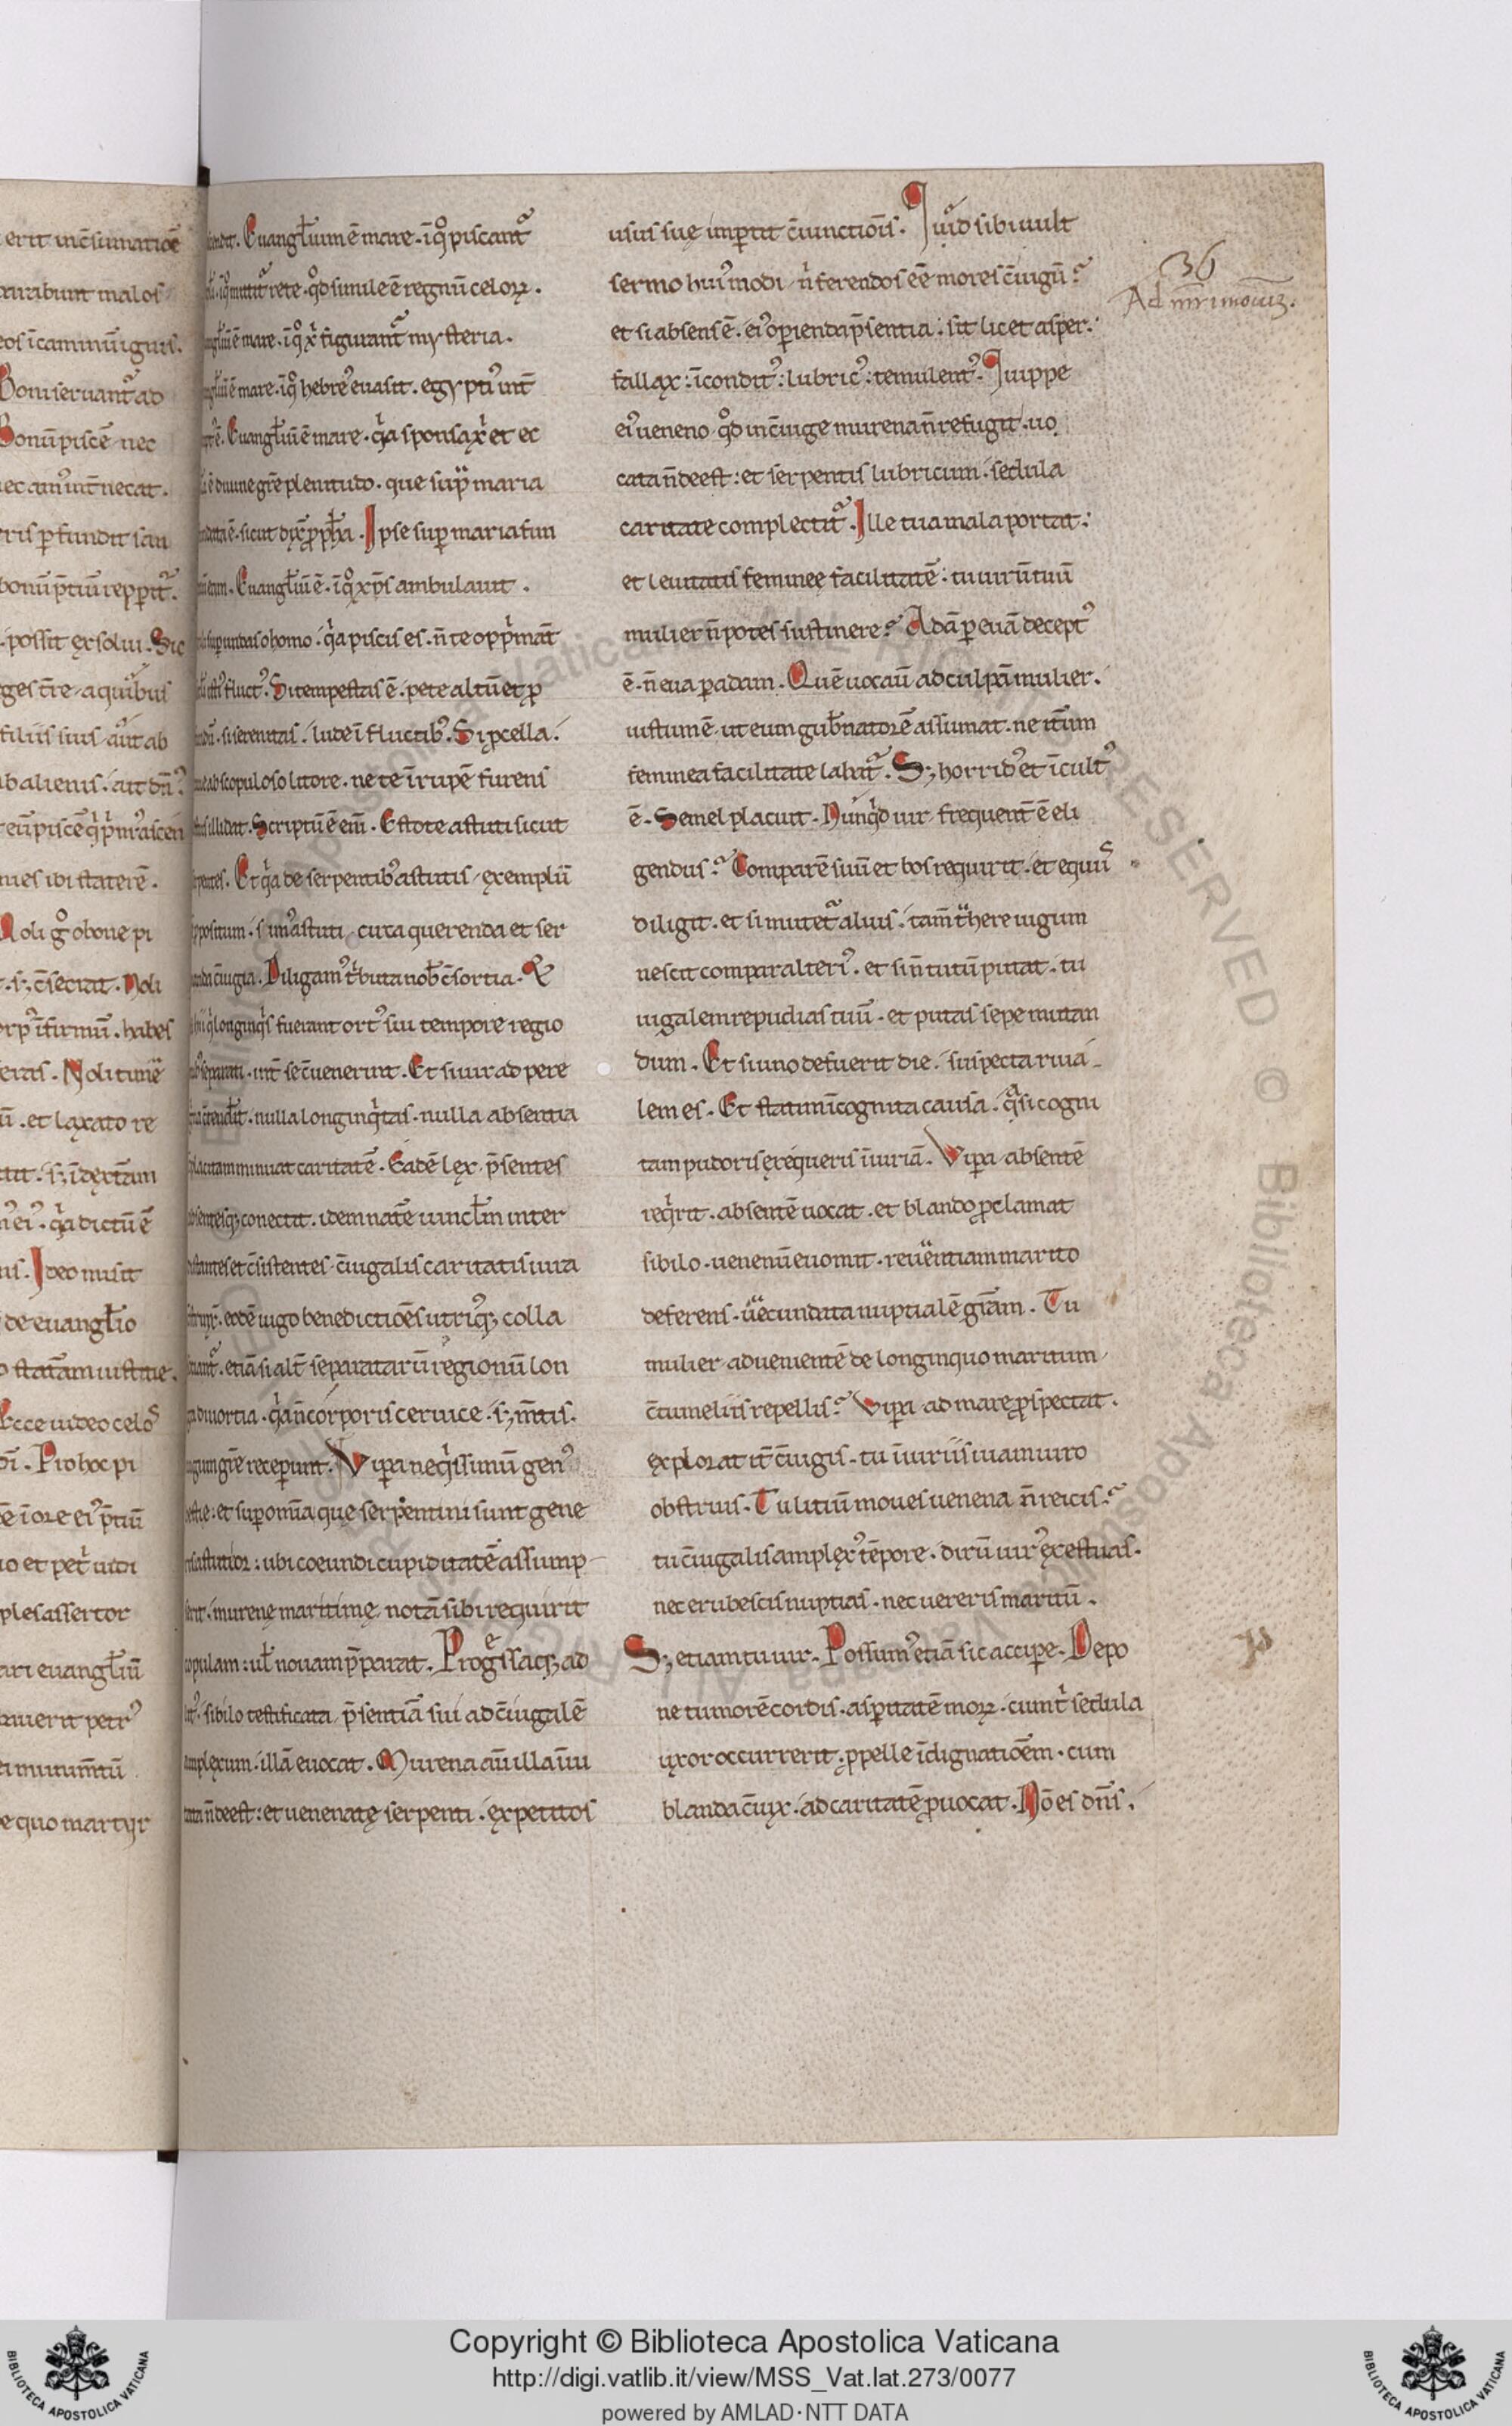 erit in c̄sumatiōe
parabunt malos
eos ī caminū ignis.
Boni servant᷑ ad
Bonū piscē nec
nec amꝰ int̄ necat.
eris ꝑfundit san
bonū p̄tiū repꝑit᷑.
possit exsolvi. Sic
eges t̄re a quibus
filiis suis aut ab
ab alienis. ait dn̄s?
eū piscē q̇ ṗmꝰ ascen
nies ibi staterē.
Noli gͦ o bone pi
s; c̄secrat. Noli
corpꝰ īfirmū. habes
Noli timē
ū. et laxato re
s; ī dext̄am
eiꝰ. q̇a dictū ē
Ideo misit
de evangl̄io
statam iustitie.
Ecce video celoˢ
Pro hoc pi
ē ī ore eiꝰ p̄tiū
et pet̄ vidi
ples assertor
ari evangl̄iū
averit petrꝰ
ei minimtū
e quo martyr
Evangl̄ium ē mare. ī qͦ piscant᷑
ī qͦ mittit᷑ rete. qͦd simile ē regnū celoꝝ.
ē mare. ī qͦ xp̄i figurant᷑ mysteria.
ē mare. ī qͦ hebreꝰ evasit. egyptiꝰ int̄
Evangl̄iū ē mare. q̇a sponsa xp̄i et ec
divine gr̄e plenitudo. que suꝑ maria
ē. sicut dix̄ ꝓph̄a. Ipse suꝑ maria fun
eam. Evangl̄iū ē. ī qͦ xp̄s ambulavit.
o homo. q̇a piscis es. n̄ te oppͥmāt
fluctꝰ. Si tempestas ē. pete altū et ꝓ
si serenitas. lude ī fluctibꝰ. Si ꝓcella.
ab scopuloso litore. ne te ī rupē furens
illidat. Scriptū ē em̄. Estote astuti sicut
Et q̇a de serpentibꝰ astutis exemplū
positum. simꝰ astuti circa querenda et ser
c̄iugia. Diligamꝰ t̄buta nob̄ c̄sortia. Et
longinqͥs fuerant ortꝰ sui tempore regio
separati. int̄ se c̄venerint. Et si vir ad pere
nulla longinqͥtas. nulla absentia
minuat caritatē. Eadē lex p̄sentes
absentesq; conectit. idem nat̄e vincl̄m inter
distantes et c̄sistentes c̄iugalis caritatis iura
eodē iugo benedictiōes utriꝰq; colla
etiā si alt̄ separatarū regionū lon
divortia. q̇a n̄ corporis cervice. s; m̄tis.
gr̄e receꝑunt. Viꝑa neqͥssimū genꝰ
bestie: et suꝑ omīa que serpentini sunt gene
astutior: ubi coeundi cupiditatē assump
serit. murenę maritimę notā sibi requirit
copulam: ul̄ novam p̄parat. Progressaq; ad
litꝰ. sibilo testificata p̄sentiā sui ad c̄iugalē
amplexum illā evocat. Murena aū illa īvi
tata n̄ deest: et venenatę serpenti. expetitos
usus suę imꝑtit c̄iunctiōis. Quid sibi vult
sermo huiꝰmodi n̄ ferendos eē mores c̄iugū?
et si absens ē. eiꝰ oꝑienda p̄sentia: sit licet asper:
fallax: īconditꝰ: lubricꝰ: temulentꝰ. Quippe
eiꝰ veneno qͦd in c̄iuge murena n̄ refugit. vo
cata n̄ deest: et serpentis lubricum. sedula
caritate complectit᷑. Ille tua mala portat:
et levitatis feminee facilitatē: tu virū tuū
mulier n̄ potes sustinere? Adā ꝑ evā deceptꝰ
ē. n̄ eva ꝑ adam. Quē vocaū ad culpā mulier.
iustum ē. ut eum gub̄natorē assumat. ne it̄um
feminea facilitate labat᷑. S; horridꝰ et īcultꝰ
ē. Semel placuit. Nunqͥd vir frequent̄ ē eli
gendus? Comparē suū et bos requirit. et equuˢ
diligit. et si mutet᷑ alius. tam̄ t̄here iugum
nescit compar alteriꝰ. et si n̄ totū putat. tu
iugalem repudias tuū. et putas sepe mutan
dum. Et si uno defuerit die. suspecta riva-
lem es. Et statim īcognita causa. q̄si cogni
tam pudoris exequeris īiuriā. Viꝑa absentē
reqͥrit. absentē vocat. et blando ꝓclamat
sibilo. venenū evomit. rev̄entiam marito
deferens. v̄ecundata nuptialē gr̄am. Tu
mulier advenientē de longinquo maritum
c̄tumeliis repellis? Viꝑa ad mare ꝓspectat.
explorat it̄ c̄iugis. tu īiuriis viam viro
obstruis. Tu litiū moves venena n̄ reicis?
tu c̄iugalis amplexꝰ tēpore. dirū virꝰ exestuas.
nec erubescis nuptias. nec vereris maritū.
S; etiam tu vir. Possumꝰ etiā sic accipe. Depo
ne tumorē cordis. asꝑitatē moꝝ. cum t̄ sedula
uxor occurrerit. ꝓpelle īdignatiōem. cum
blanda c̄iux. ad caritatē ꝓvocat. Nō es dn̄s.
36
Ad m̄rimoniū.
Copyright © Biblioteca Apostolica Vaticana
http://digi.vatlib.it/view/MSS_Vat.lat.273/0077
powered by AMLAD·NTT DATA
BIBLIOTECA APOSTOLICA VATICANA
BIBLIOTECA APOSTOLICA VATICANA